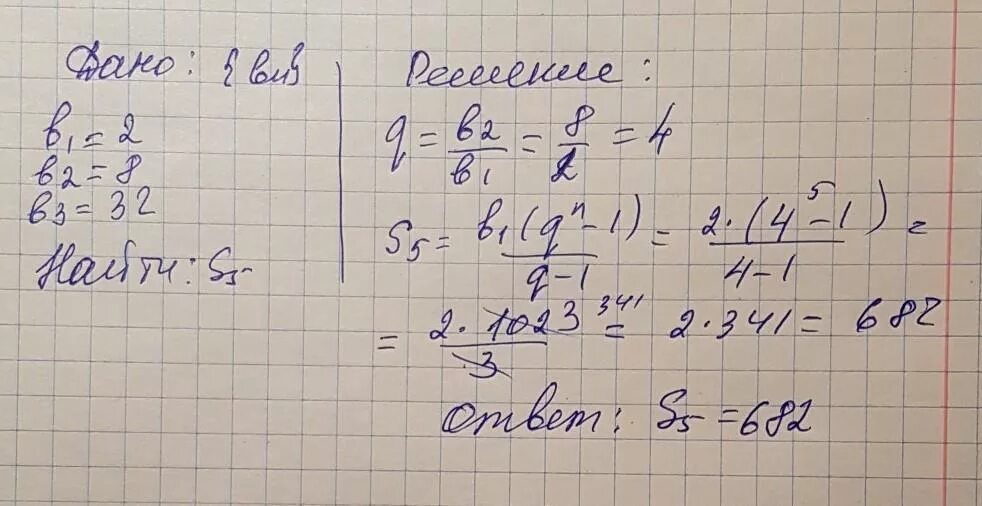 Дано: {вn}
в₁ = 2
в2 = 8
в3 = 32
Найти: S₅
Решение:
q = в2/в₁ = 8/2 = 4
S₅ = в₁(qⁿ-1)/(q-1) = 2·(4⁵-1)/(4-1) =
= 2·1023/3 ³⁴¹ = 2·341 = 682
Ответ: S₅ = 682